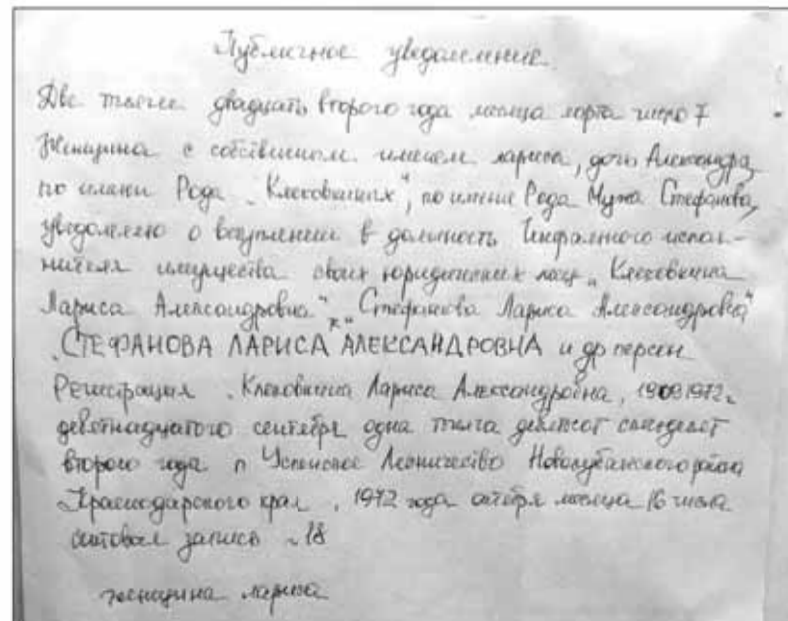 Публичное уведомление
Две тысячи двадцать второго года месяца марта число 7
Женщина с собственным именем лариса, дочь Александра,
по имени Рода „Клековкиных", по имени Рода Мужа Стефанова,
уведомляю о вступлении в должность Бенефициарного испол-
нителя имущества своих юридических лиц „Клековкина
Лариса Александровна", „Стефанова Лариса Александровна"
„СТЕФАНОВА ЛАРИСА АЛЕКСАНДРОВНА и др персон
Регистрация Клековкина Лариса Александровна, 19091972г.
девятнадцатого сентября одна тысяча девятсот семьдесят
второго года п Успенское Лесничество Новокубанского района
Краснодарского края, 1972 года октября месяца 16 числа
актовая запись 18
женщина лариса